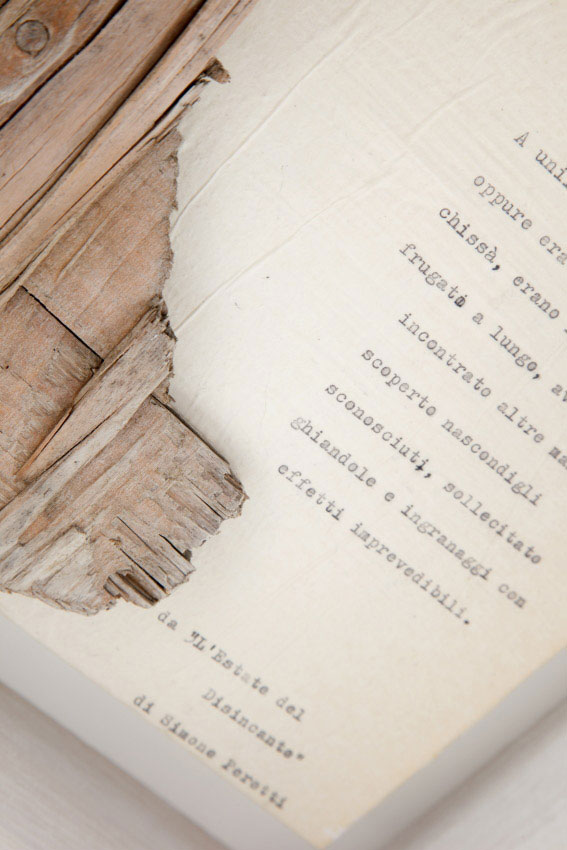 A uni
oppure era
chissà, erano
frugato a lungo, av
incontrato altre ma
scoperto nascondigli
sconosciuti, sollecitato
ghiandole e ingranaggi con
effetti imprevedibili.
da "L'Estate del
Disincanto"
di Simone Perotti